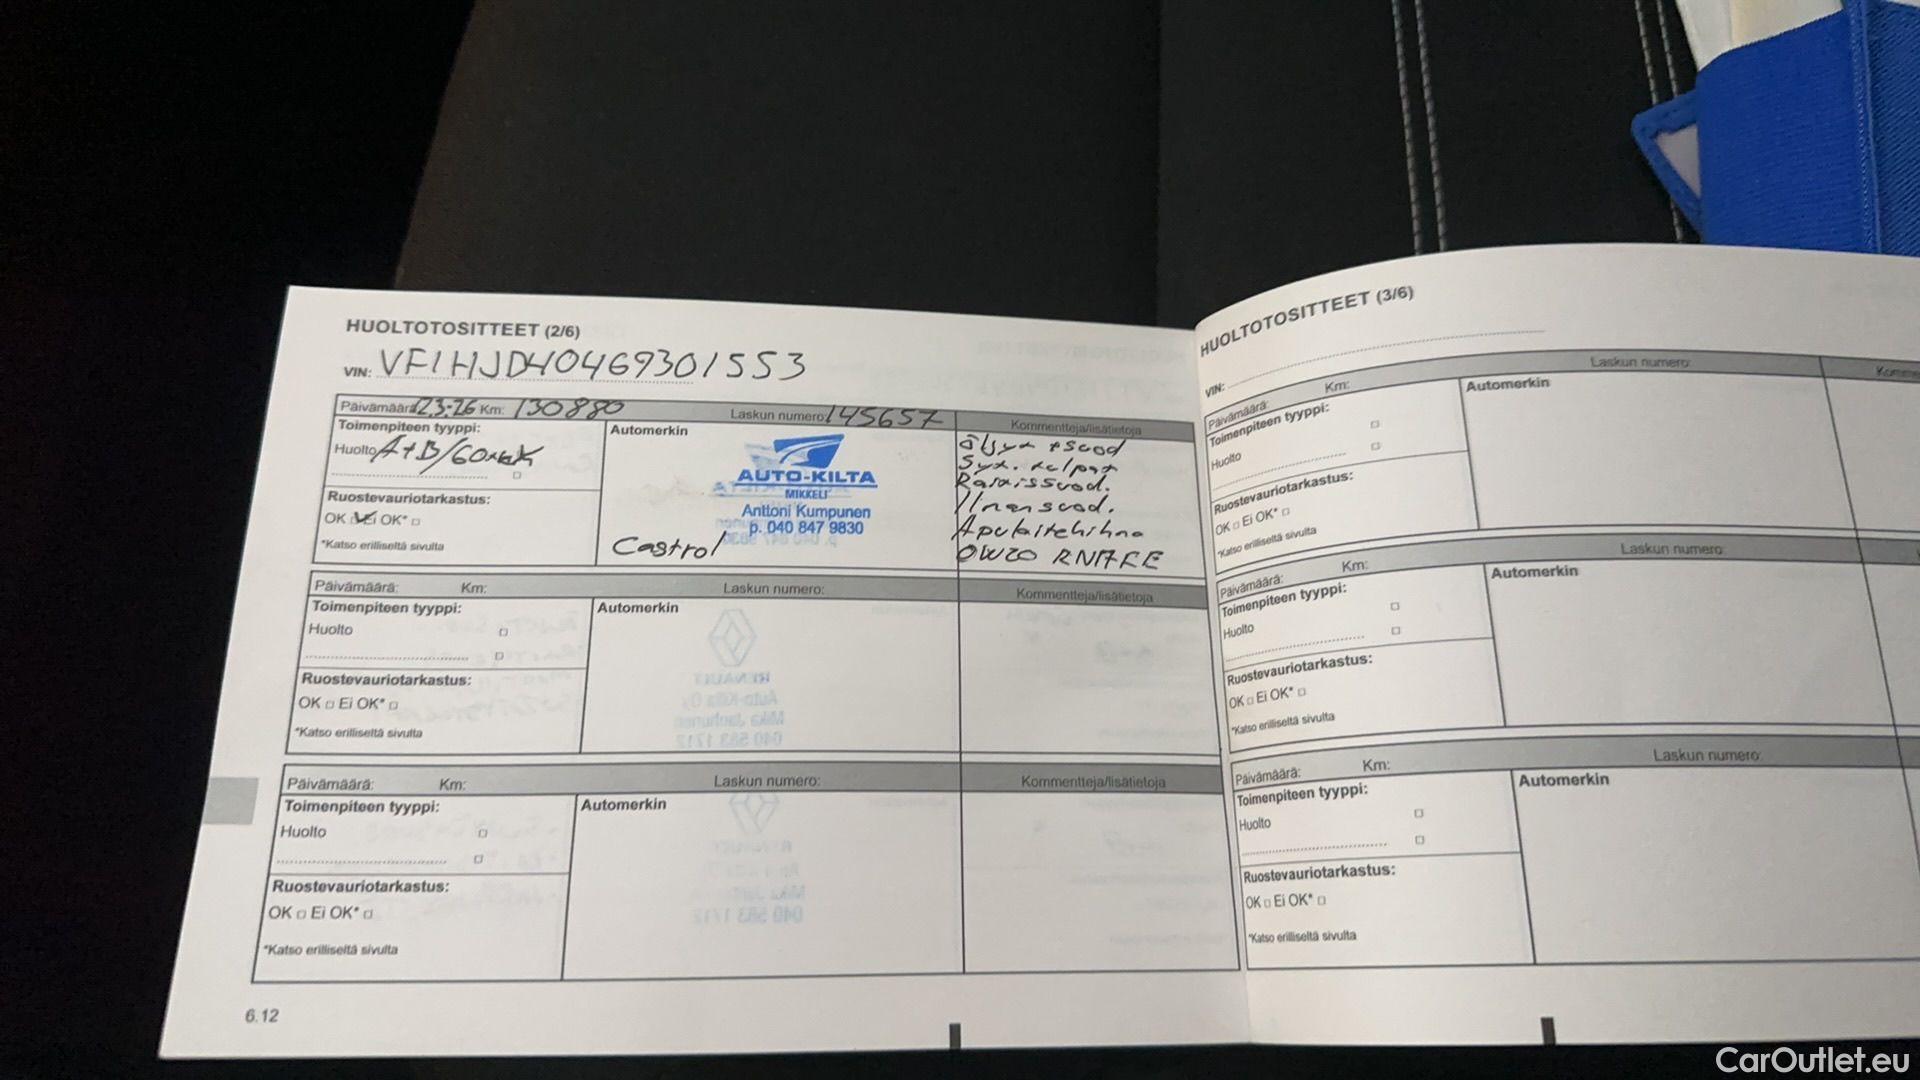 HUOLTOTOSITTEET (2/6)
VIN: VF1HJD40469301553
Päivämäärä: 23.26 Km: 130880 Laskun numero: 145657 Kommentteja/lisätietoja
Toimenpiteen tyyppi:
Huolto A+B/60
Ruostevauriotarkastus:
OK Ei OK*
*Katso erilliseltä sivulta
Automerkin
AUTO-KILTA
MIKKELI
Anttoni Kumpunen
p. 040 847 9830
Castrol
Öljyx + suod
Raraissuod.
Ilmansuod.
Apulaitehihna
0W20 RN17FE
Päivämäärä: Km: Laskun numero: Kommentteja/lisätietoja
Toimenpiteen tyyppi:
Huolto
Ruostevauriotarkastus:
OK Ei OK*
*Katso erilliseltä sivulta
Automerkin
Päivämäärä: Km: Laskun numero: Kommentteja/lisätietoja
Toimenpiteen tyyppi:
Huolto
Ruostevauriotarkastus:
OK Ei OK*
*Katso erilliseltä sivulta
Automerkin
6.12
HUOLTOTOSITTEET (3/6)
VIN:
Päivämäärä: Km: Laskun numero:
Toimenpiteen tyyppi:
Huolto
Ruostevauriotarkastus:
OK Ei OK*
*Katso erilliseltä sivulta
Automerkin
Päivämäärä: Km: Laskun numero:
Toimenpiteen tyyppi:
Huolto
Ruostevauriotarkastus:
OK Ei OK*
*Katso erilliseltä sivulta
Automerkin
Päivämäärä: Km: Laskun numero:
Toimenpiteen tyyppi:
Huolto
Ruostevauriotarkastus:
OK Ei OK*
*Katso erilliseltä sivulta
Automerkin
CarOutlet.eu